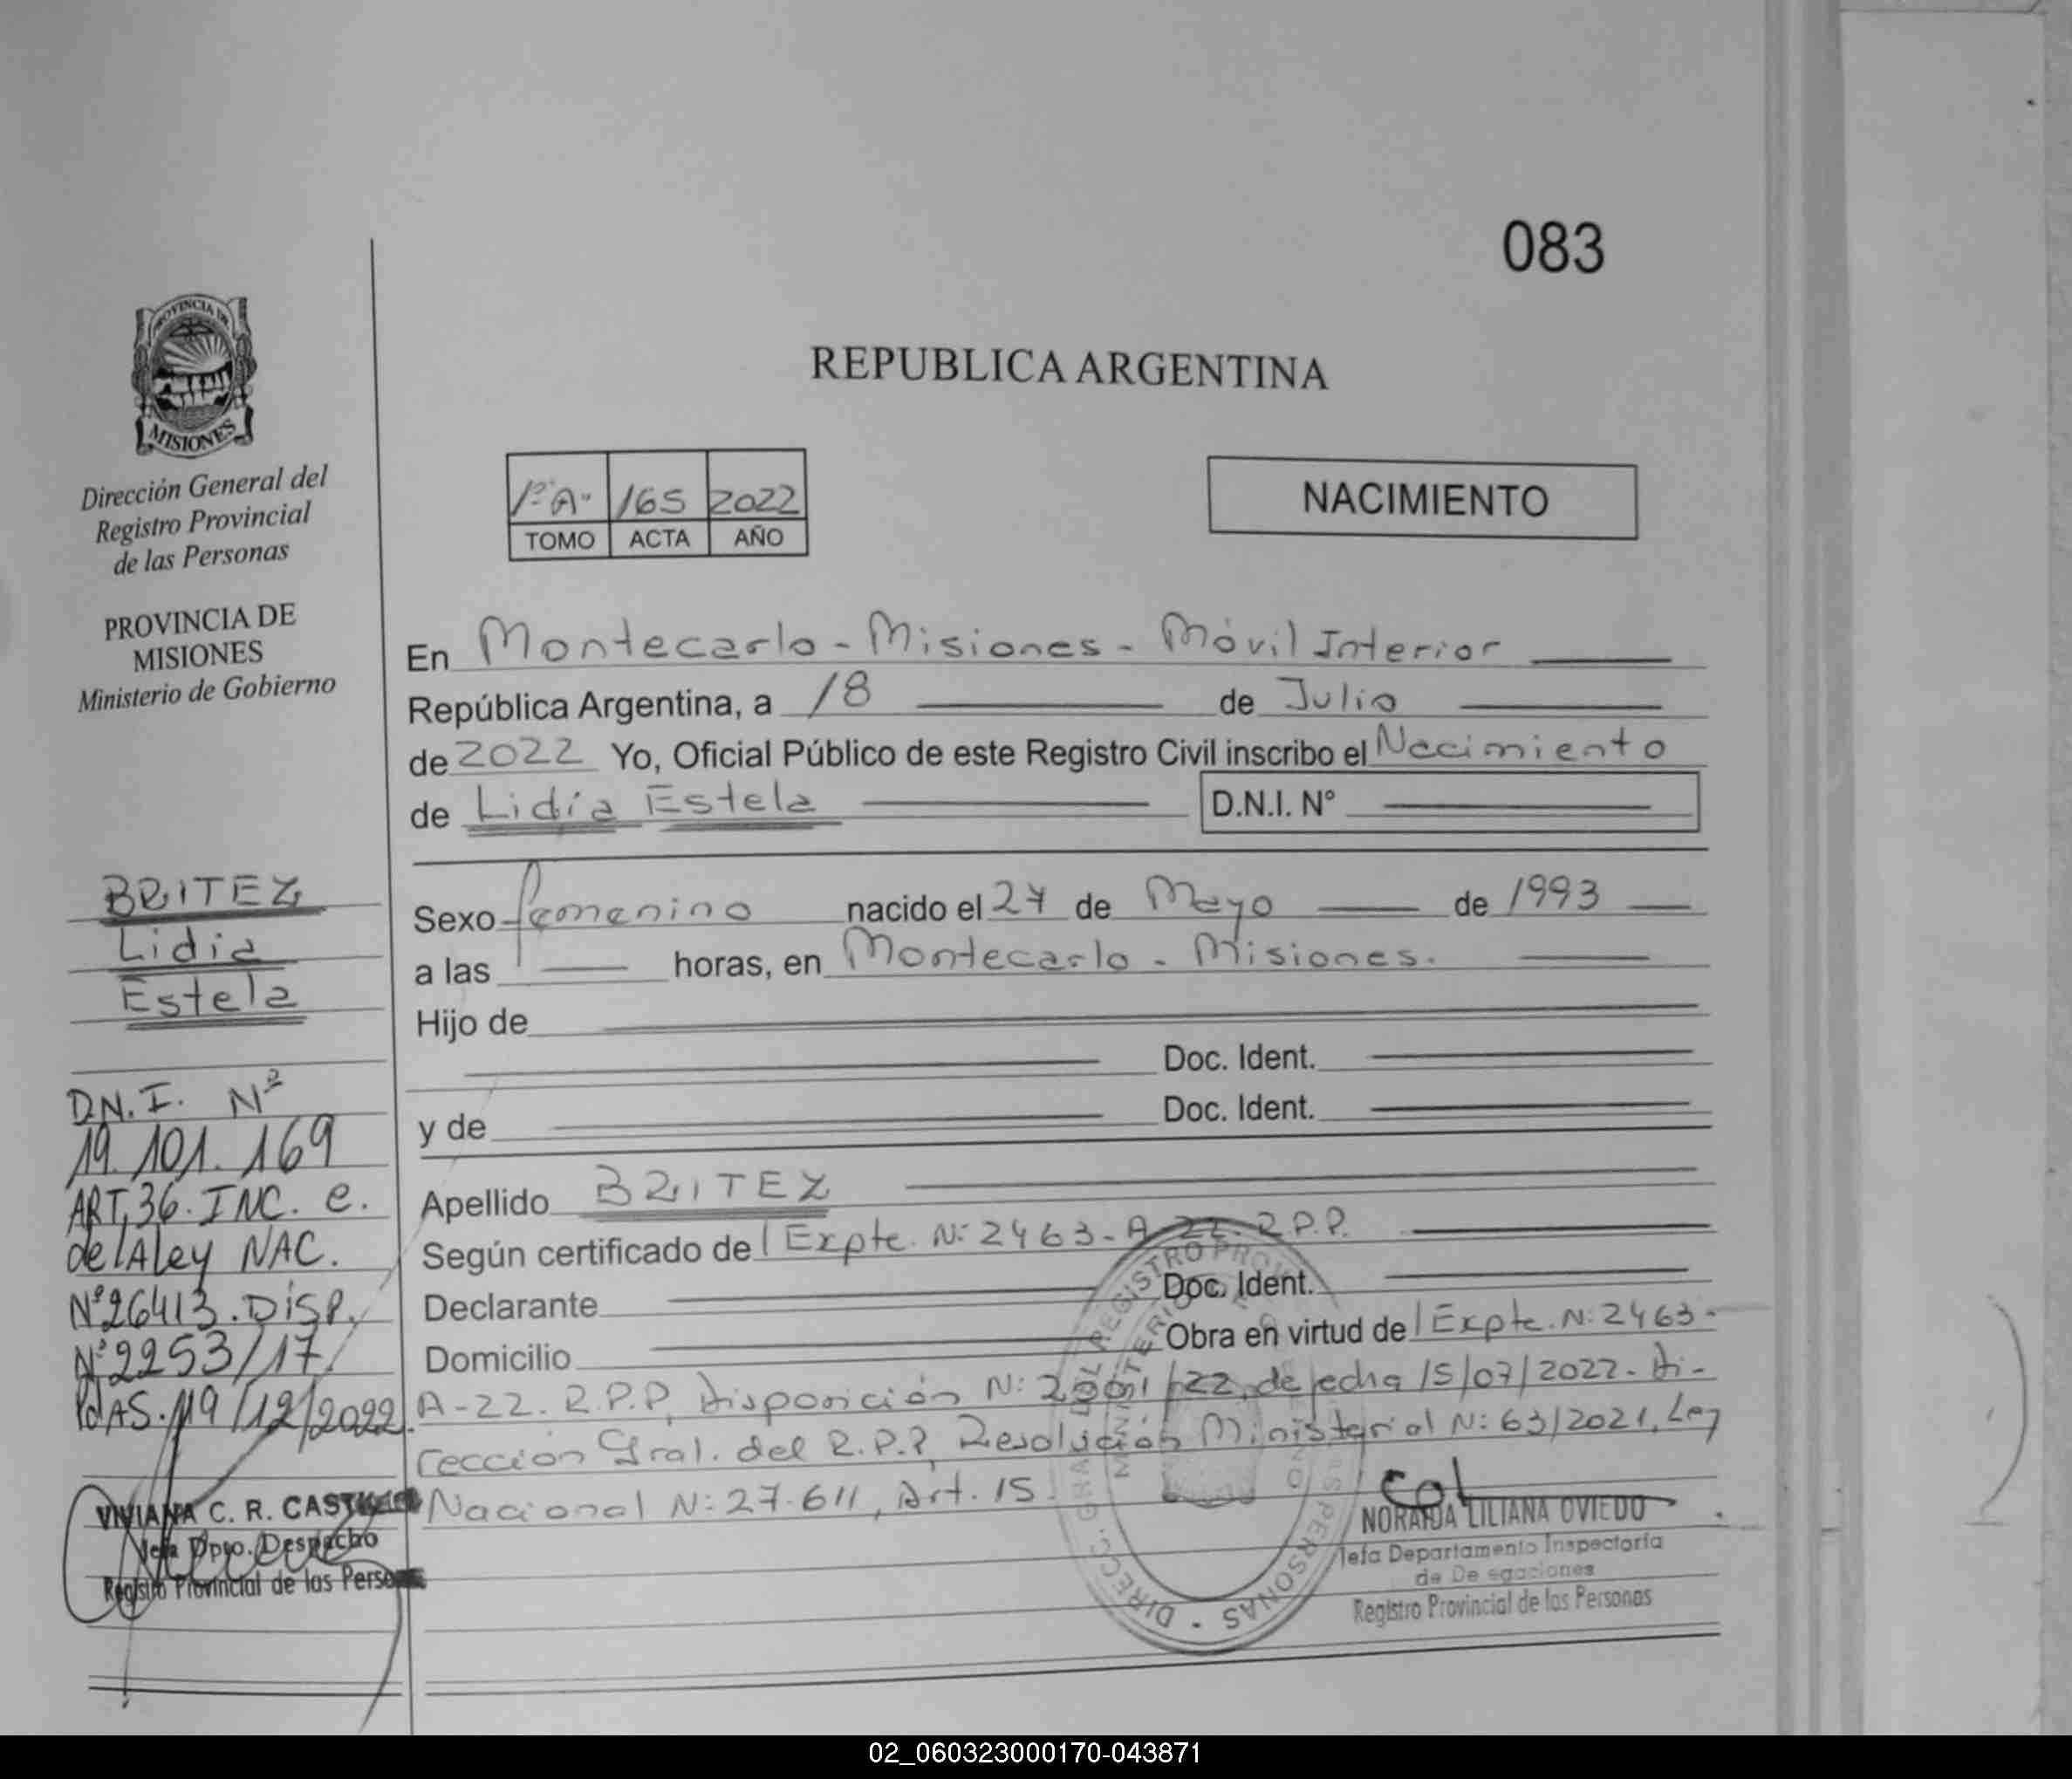 083
PROVINCIA DE
MISIONES
Dirección General del
Registro Provincial
de las Personas
PROVINCIA DE
MISIONES
Ministerio de Gobierno
REPUBLICA ARGENTINA
1º "A" 165 2022
TOMO ACTA AÑO
NACIMIENTO
En Montecarlo - Misiones - Móvil Interior
República Argentina, a 18 de Julio
de 2022 Yo, Oficial Público de este Registro Civil inscribo el Nacimiento
de Lidia Estela D.N.I. N°
Sexo femenino nacido el 27 de Mayo de 1993
a las horas, en Montecarlo - Misiones.
Hijo de
Doc. Ident.
y de Doc. Ident.
Apellido BRITEZ
Según certificado de l Expte. N: 2463-A-22. R.P.P.
Declarante Doc. Ident.
Domicilio Obra en virtud de l Expte. N: 2463-
A-22. R.P.P, Disposición N: /22, de fecha 15/07/2022. Di-
rección Gral. del R.P.P, Resolución Ministerial N: 63/2021, Ley
Nacional N: 27.611, Art. 15.
BRITEZ
Lidia
Estela
D.N.I. Nº
19.101.169
ART, 36. INC. e.
de lA ley NAC.
Nº 26413. DiSP.
Nº 2253/17
PdAS. 19/12/2022.
VIVIANA C. R.
Jefa Dpto. Despacho
Registro Provincial de las Person
NORAIDA LILIANA OVIEDO
Jefa Departamento Inspectoría
de De egaciones
Registro Provincial de las Personas
02_060323000170-043871